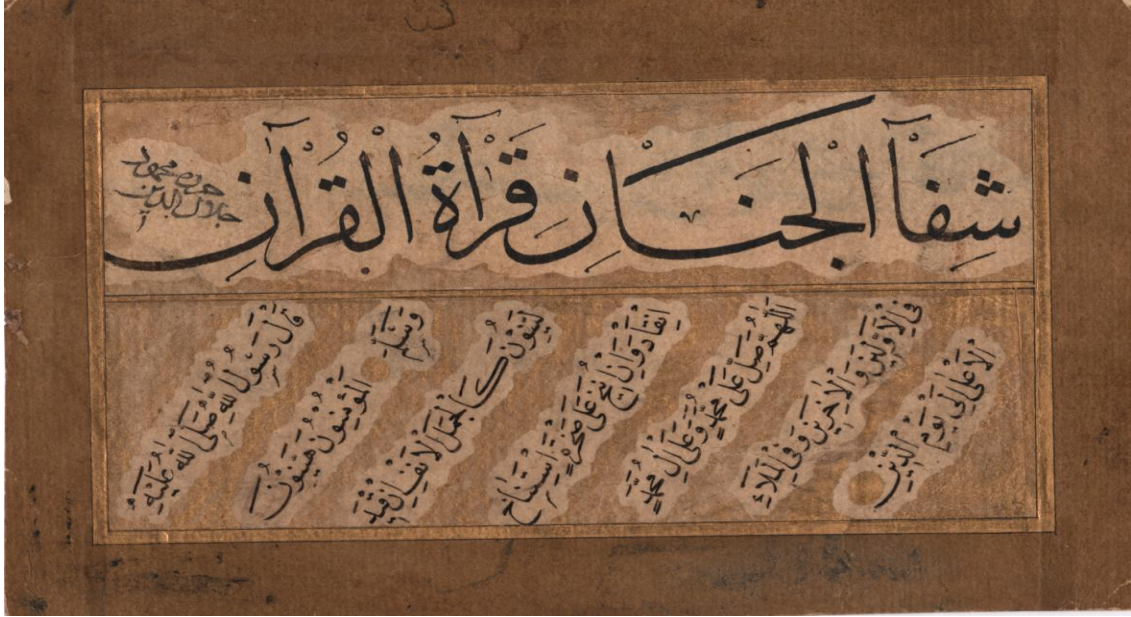 شِفَآ الْجَنَانِ قِرْآةُ الْقُرْآنِ
حرره محمود
جلال الدين
قَالَ رَسُولُ اللهِ صَلَّى اللهُ عَلَيْهِ
وَسَلَّمَ الْمُؤْمِنُونَ هَيِّنُونَ
لَيِّنُونَ كَالْجَمَلِ الْاَنِفِ اِنْ قُيِّدَ
اِنْقَادَ وَاِنْ اُنِيخَ عَلَى صَخْرَةٍ اِسْتَنَاخَ
اَللّٰهُمَّ صَلِّ عَلَى مُحَمَّدٍ وَعَلَى اٰلِ مُحَمَّدٍ
فِي الْاَوَّلِينَ وَالْاٰخِرِينَ وَفِي الْمَلَاءِ
الْاَعْلَى اِلَى يَوْمِ الدِّينِ